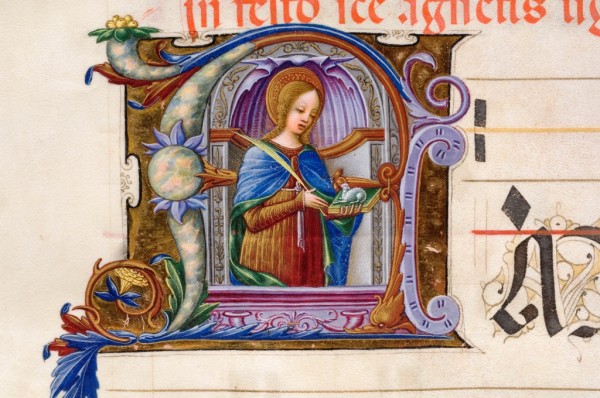 in festo sce agnetis
A